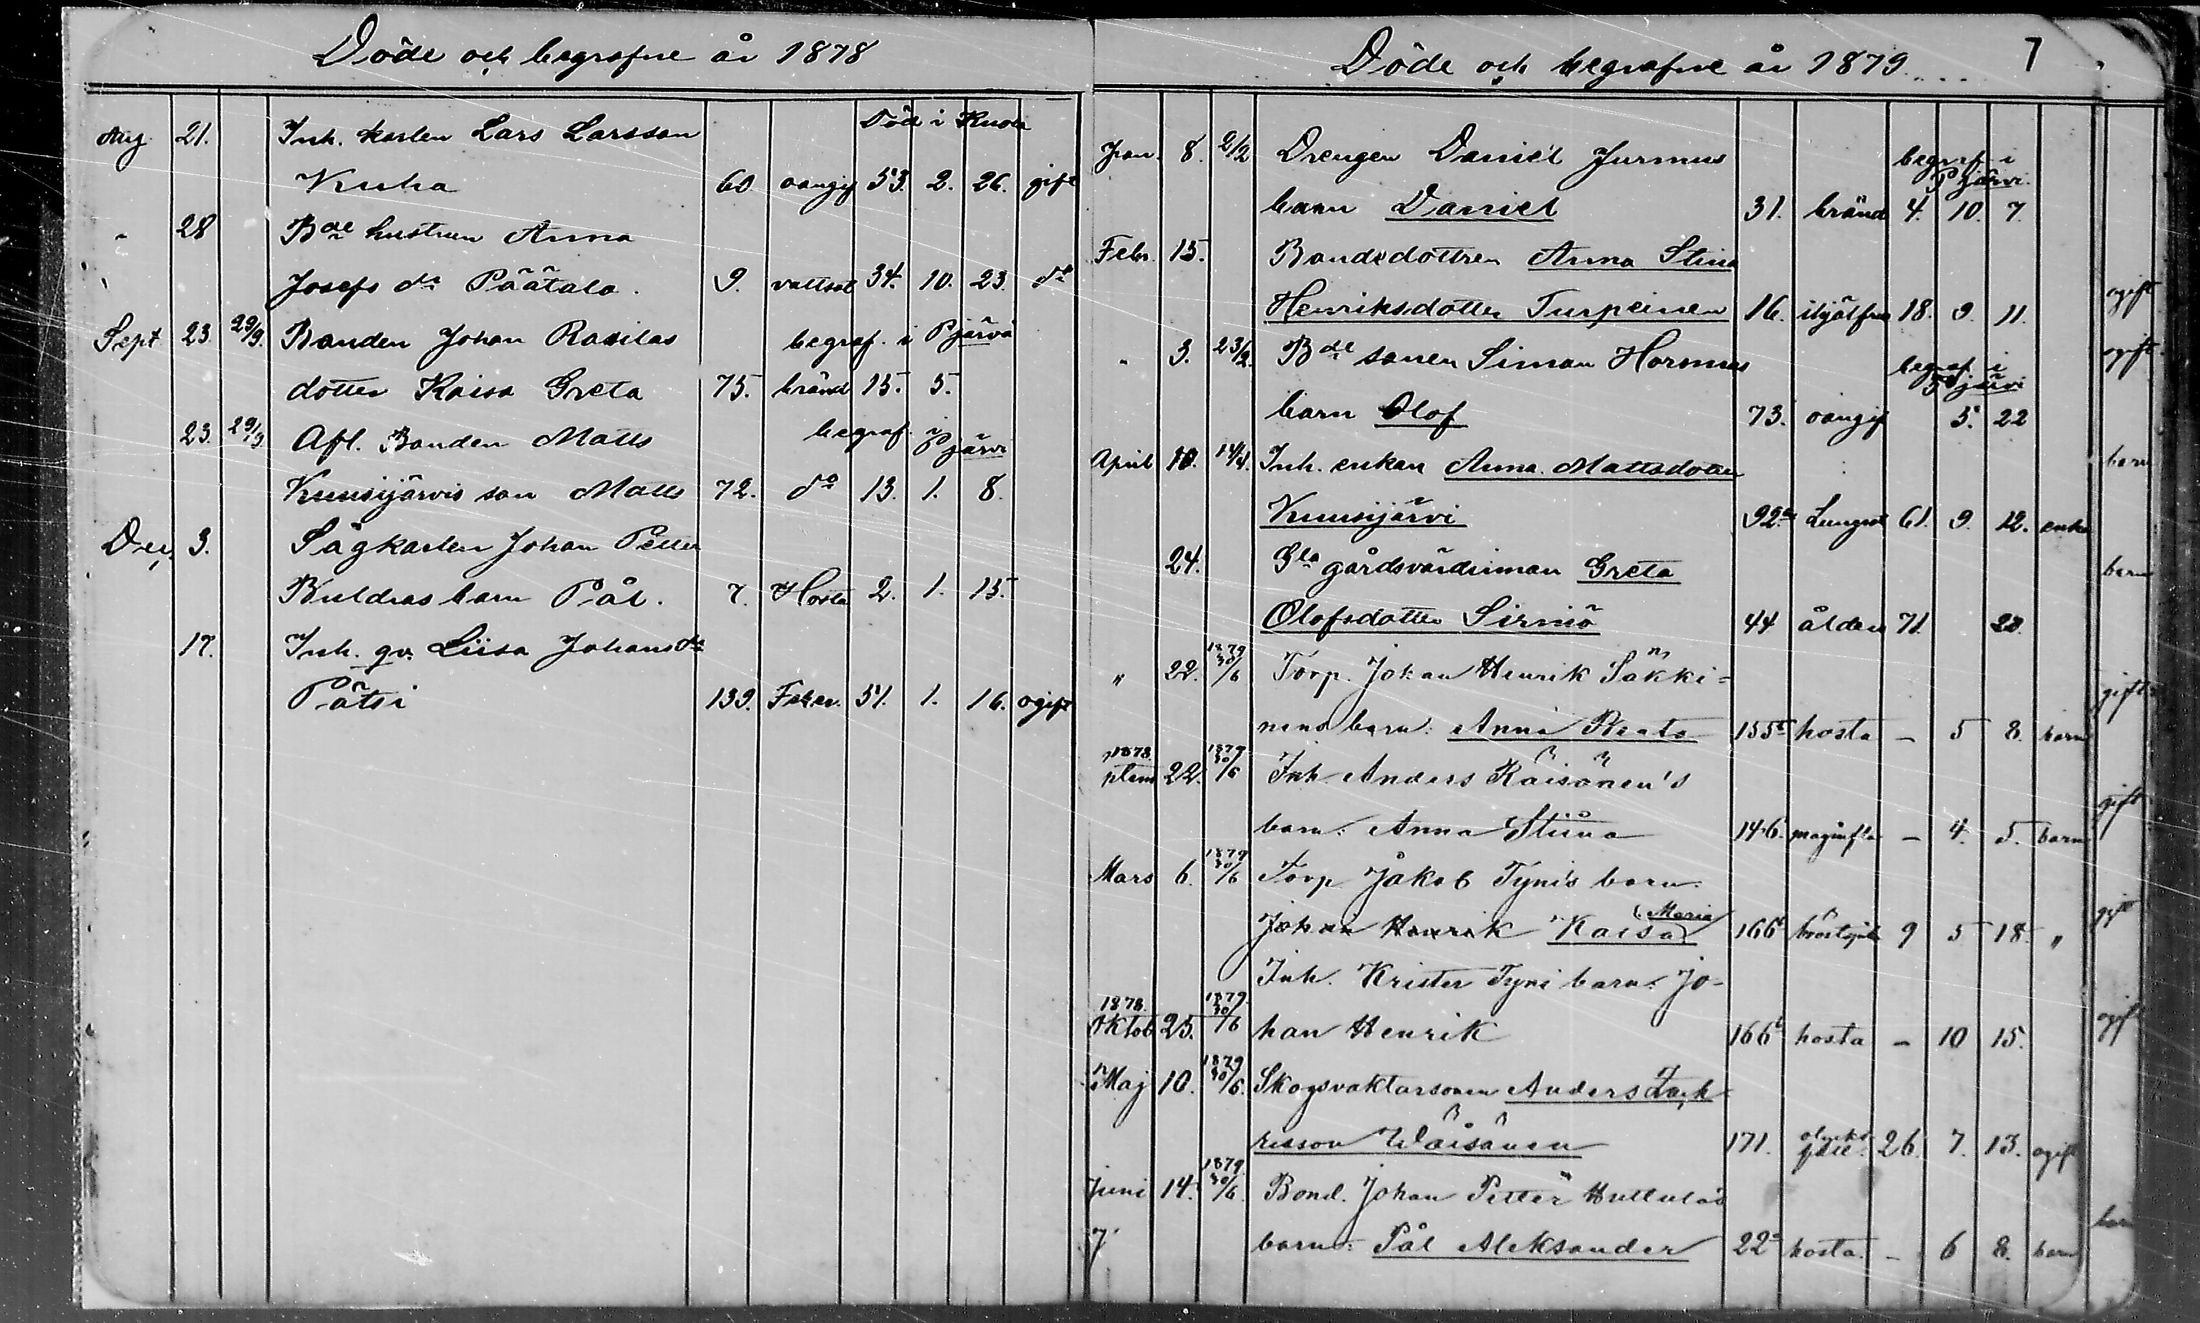 Döde och begrafne år 1878
Död i Kuola
Aug 21. Inh. karlen Lars Larsson
Kuha 60 oangif 53. 2. 26. gift
" 28 Bde hustrun Anna
Josefs dr Päätalo. 9. vattsot 34. 10. 23. do
Sept 23. 29/9. Bonden Johan Rasilas begraf. i Pjärvi
dotter Kaisa Greta 75. bränd 15. 5.
23. 29/9 Afl. Bonden Matts begraf. i Pjärvi
Kuusijärvis son Matts 72. do 13. 1. 8.
Dec. 3. Sågkarlen Johan Petter
Kuldras barn Pål. 7. Hosta 2. 1. 15.
17. Inh. qv. Liisa Johans dr
Pätsi 139. Feber. 51. 1. 16. ogift
Döde och begrafne år 1879 7
Jan. 8. 2/2 Drengen Daniel Jurmus begraf i Pjärvi
barn Daniel 31. bränd 4. 10. 7.
Febr. 15. Bondedottren Anna Stina
Henriksdotter Turpeinen 16. ihjälfrus 18. 9. 11. ogift
" 3. 23/2. Bde sonen Simon Hormus begraf i Pjärvi ogift
barn Olof 73. oangif 5. 22
April 10. 14/4. Inh. enkan Anna Mattsdotter barn
Kuusijärvi 92a Lungsot 61. 9. 12. enka
24. Gla gårdsvärdinnan Greta barn
Olofsdotter Sirniö 44 ålder 71. 28.
" 22. 1879 30/6 Torp. Johan Henrik Säkki=
nens barn: Anna Beata 155b hosta – 5 8. barn gift
1878 ptem 22. 1879 30/6 Inh. Anders Räisänen's
barn: Anna Stiina 146. maginfla – 4. 5. barn gift
Mars 6. 1879 30/6 Torp Jakob Tyni's barn
Johan Henrik Kaisa (Maria 166b 9 5 18. " gift
Inh. Krister Tyni barn: Jo-
1878. Oktob 25. 1879. 30/6 han Henrik 166b hosta – 10 15. ogift
Maj 10. 1879 30/6. Skogsvaktarsonen Anders Zack
risson Wäisänen 171. olycksfall 26. 7. 13. ogift
Juni 14. 1879. 30/6. Bond. Johan Petter Hullula's
7 barn: Pål Aleksander 22a hosta. – 6 8. barn barn